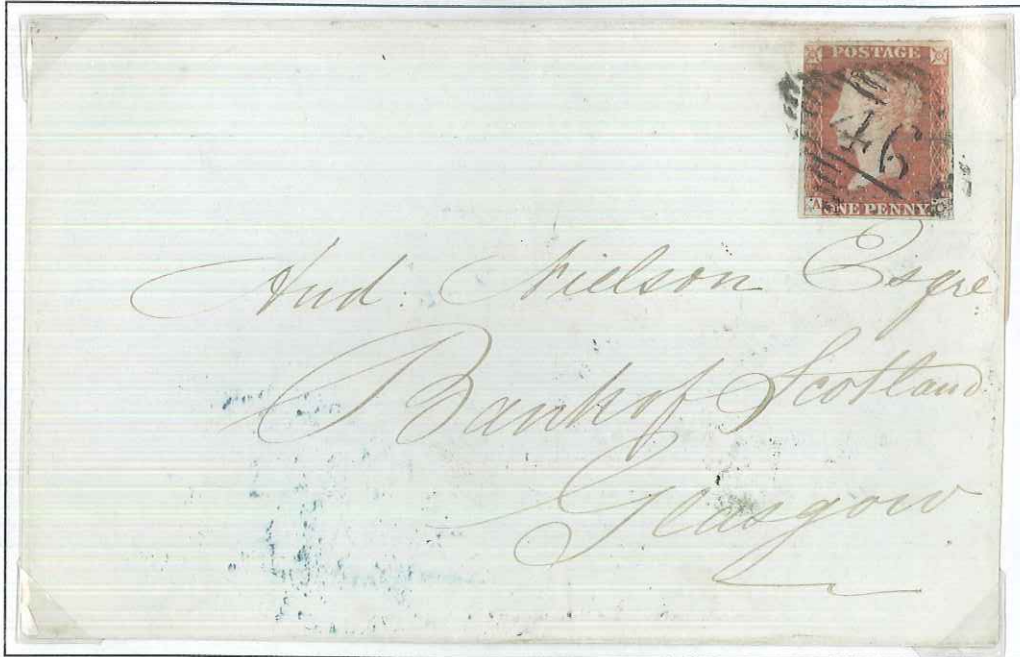 POSTAGE
46
A ONE PENNY
And: Nielson Esqre
Bank of Scotland
Glasgow